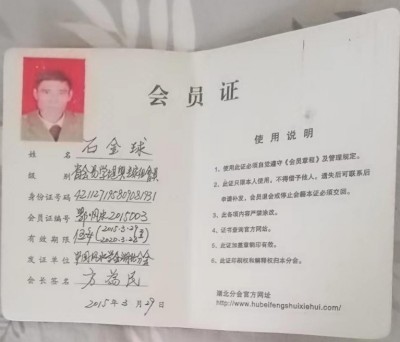 会员证
姓名 石金球
级别
身份证号码
会员证编号 鄂风水2015003
有效期限 (2015-3-29至
发证单位
会长签名 方益民
2015年3月29日
使用说明
1、使用此证必须自觉遵守《会员章程》及管理规定。
2、此证只限本人使用，不得借予他人，遗失后可联系
申请补发，会员退会或停止会籍本证必须交回。
3、此各项内容严禁涂改。
4、证书登录官方网站。
5、此证加盖章钢印有效。
6、此证印刷权和解释权归本分会。
湖北分会官方网址
http://www.hubeifengshuixiehui.com/